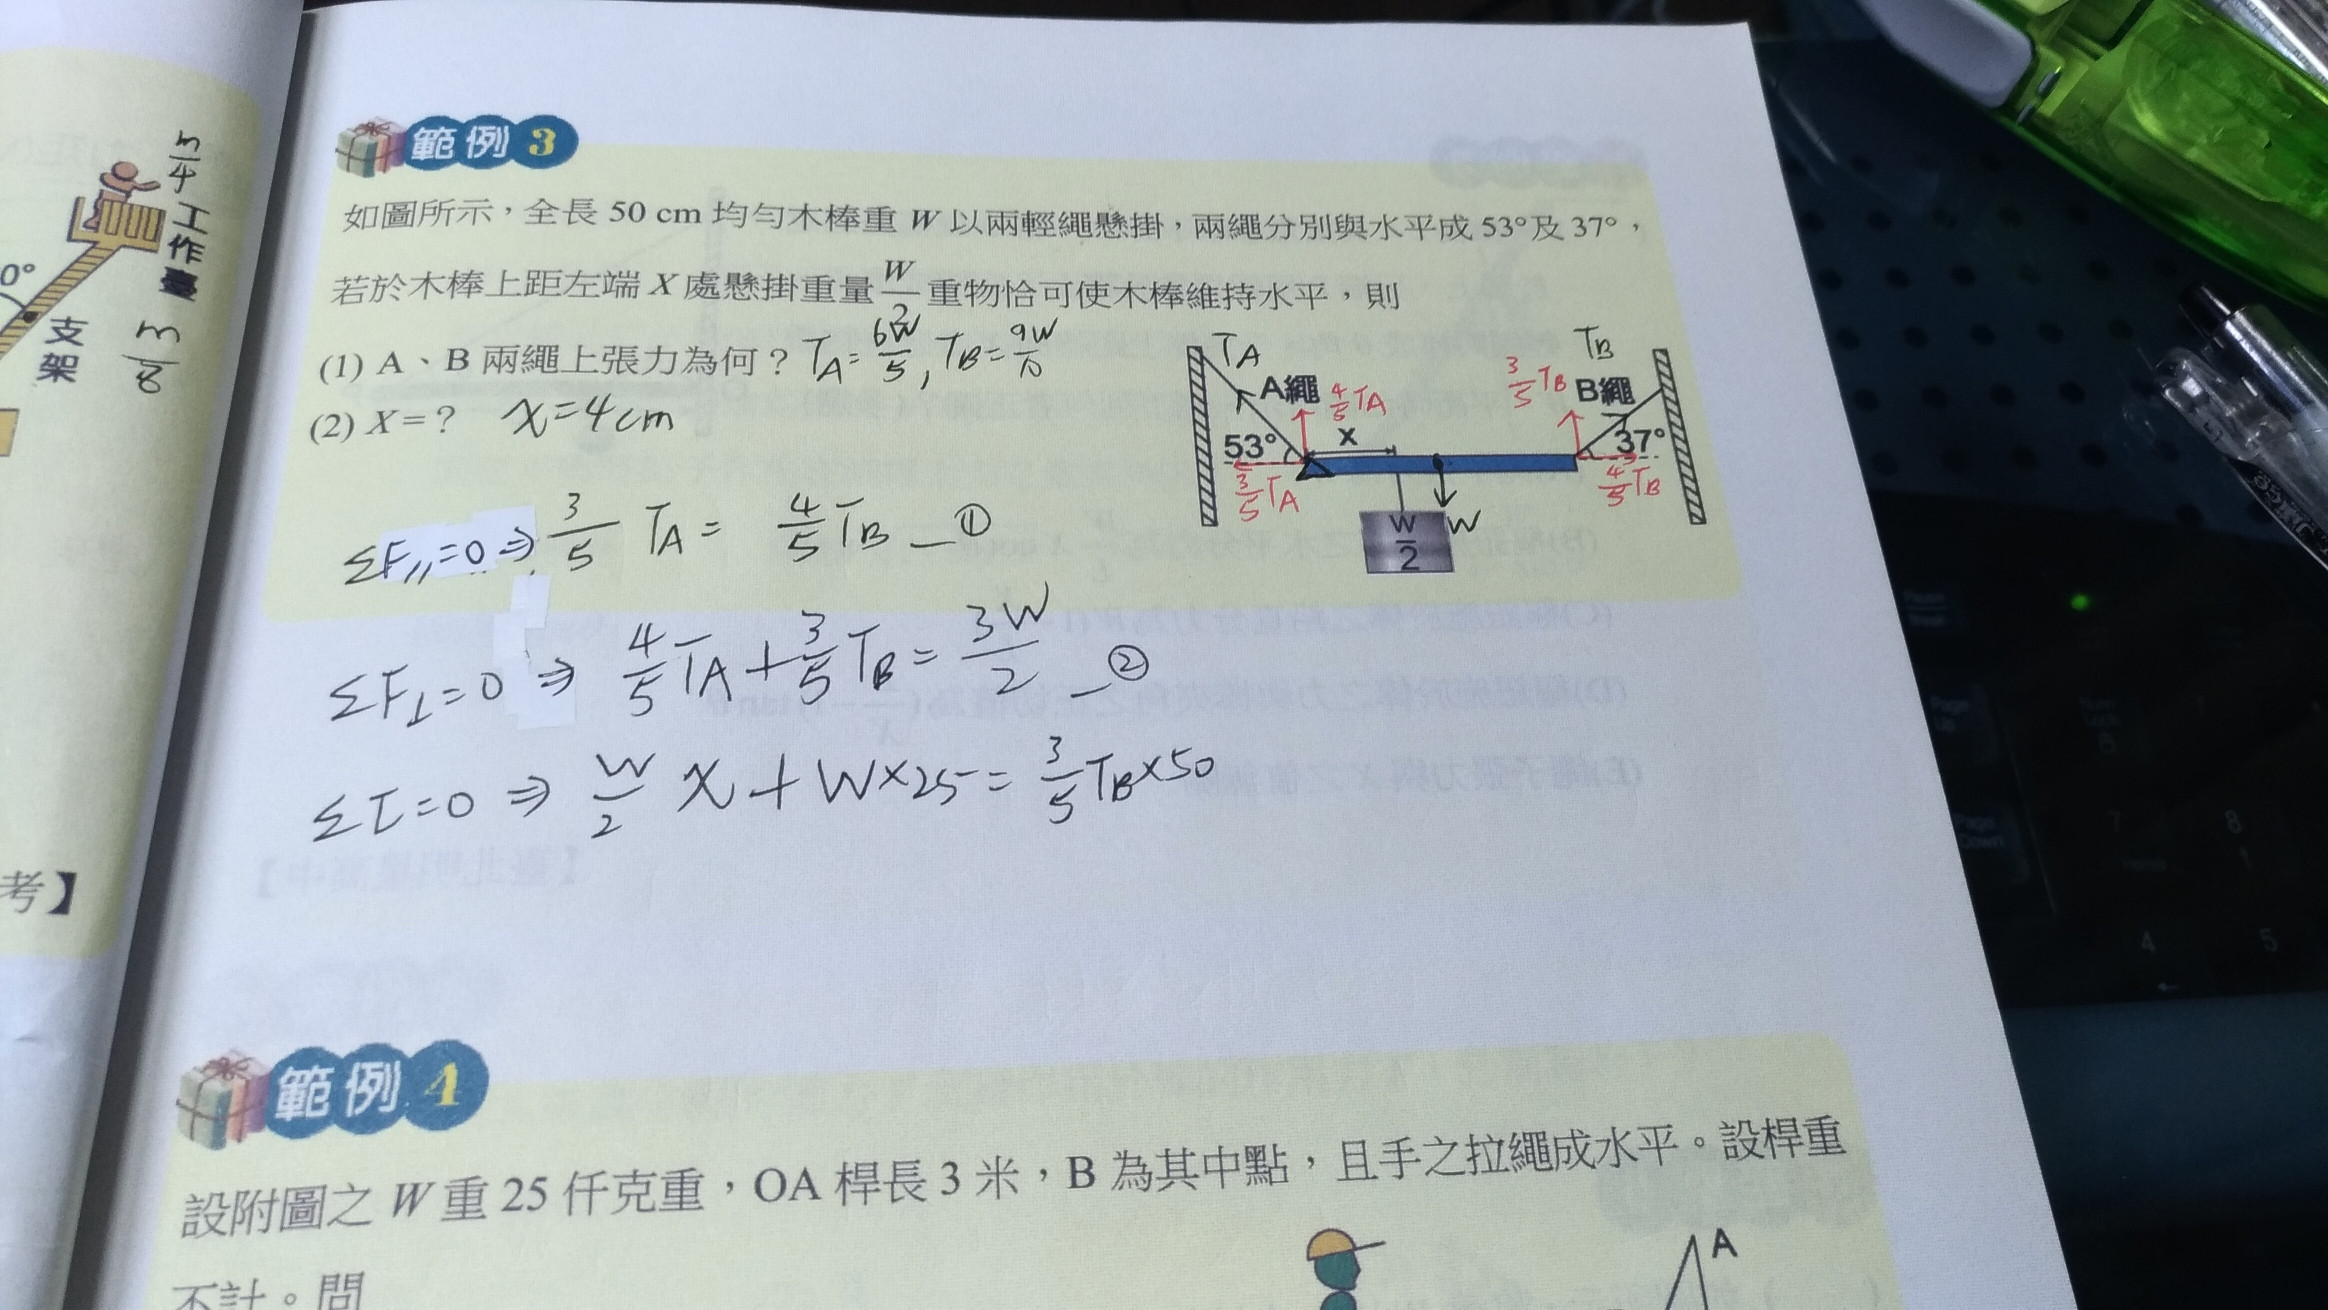 範例 3
如圖所示，全長 50 cm 均勻木棒重 W 以兩輕繩懸掛，兩繩分別與水平成 53° 及 37°，
若於木棒上距左端 X 處懸掛重量 W/2 重物恰可使木棒維持水平，則
(1) A、B 兩繩上張力為何？ TA = 6W/5 , TB = 9W/10
(2) X = ？ x = 4cm
TA
A繩
4/5 TA
53°
3/5 TA
x
W/2
W
TB
3/5 TB
B繩
37°
4/5 TB
ΣF// = 0 ⇒ 3/5 TA = 4/5 TB — ①
ΣF⊥ = 0 ⇒ 4/5 TA + 3/5 TB = 3W/2 — ②
Στ = 0 ⇒ W/2 x + W×25 = 3/5 TB×50
範例 4
設附圖之 W 重 25 仟克重，OA 桿長 3 米，B 為其中點，且手之拉繩成水平。設桿重
不計。問
A
m/4
工作臺
0°
支架
m/8
考】